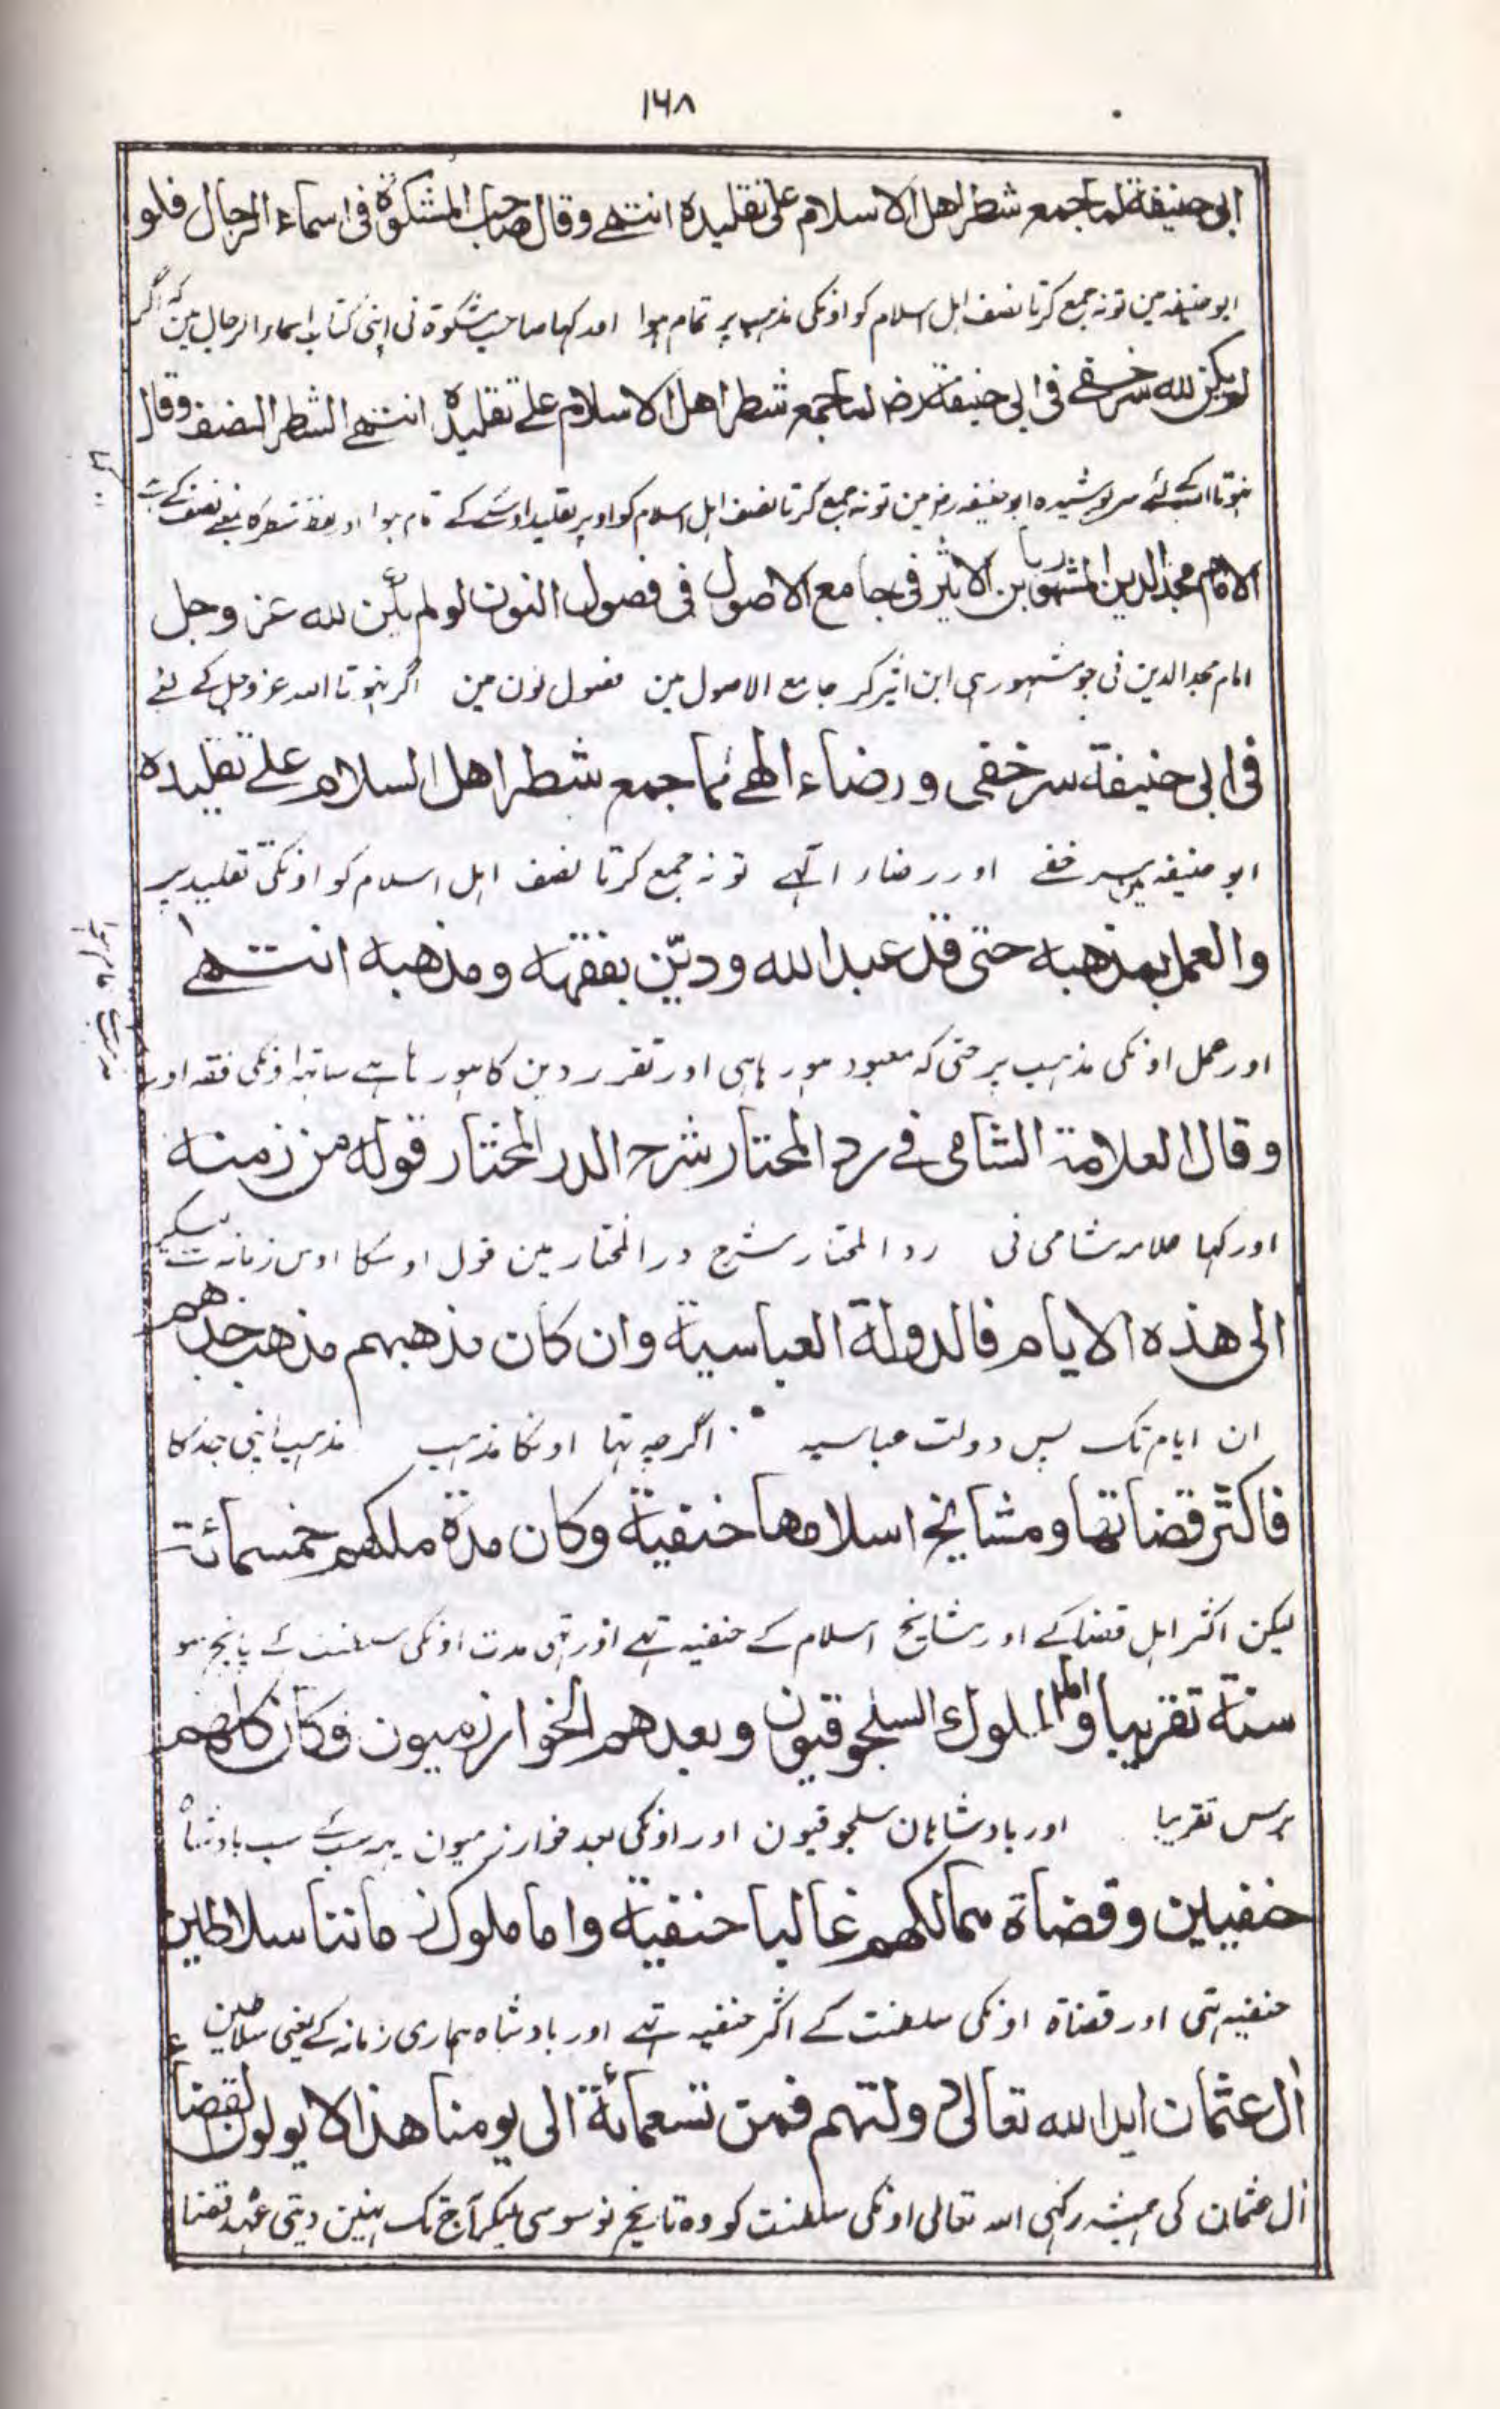 ۱۶۸
ابی حنیفة لما جمع شطر اهل الاسلام علی تقلیده انتهے وقال صاحب المشکوة فی اسماء الرجال فلو
ابو حنیفہ مین تو نہ جمع کرتا نصف اہل اسلام کو اونکی مذہب پر تمام ہوا اور کہا صاحب مشکوۃ نی اپنی کتاب اسماء الرجال مین کہ اگر
لم یکن لله سر خفے فی ابی حنیفة رض لما جمع شطر اهل الاسلام علے تقلیده انتهے الشطر النصف وقال
ہنوتا اللہ کے لئے سر پوشیدہ ابو حنیفہ رض مین تو نہ جمع کرتا نصف اہل اسلام کو اوپر تقلید اوسکے کے تمام ہوا اور لفظ شطر کا بمعنے نصف کے ہے
الامام مجد الدین المشهور بابن الاثیر فی جامع الاصول فی فصول النون لو لم یکن لله عز وجل
امام مجد الدین نی جو مشہور ہی ابن اثیر کر جامع الاصول مین فصول نون مین اگر نہوتا اللہ عز وجل کے لئے
فی ابی حنیفة سر خفی و رضاء الهے لما جمع شطر اهل السلام علے تقلیده
ابو حنیفہ مین سر خفے اور رضاء الہے تو نہ جمع کرتا نصف اہل اسلام کو اونکی تقلید پر
والعمل بمذهبه حتی قد عبد الله ودیّن بفقهه ومذهبه انتهے
اور عمل اونکی مذہب پر حتی کہ معبود ہو رہا ہی اور تقرر دین کا ہو رہا ہے ساتہہ اونکی فقہ اور
مذہب کے تمام ہوا
وقال العلامة الشامی فے رد المحتار شرح الدر المختار قوله من زمنه
اور کہا علامہ شامی نی رد المحتار شرح در المختار مین قول اوسکا اوس زمانہ سے لیکر
الی هذه الایام فالدولة العباسیة وان کان مذهبهم مذهب جدهم
ان ایام تک پس دولت عباسیہ اگرچہ تہا اونکا مذہب مذہب اپنی جد کا
فاکثر قضاتها ومشایخ اسلامها حنفیة وکان مدة ملکهم خمسمائة
لیکن اکثر اہل قضا کے اور مشایخ اسلام کے حنفیہ تہے اور تہی مدت اونکی سلطنت کے پانچ سو
سنة تقریبا واما الملوک السلجوقیون وبعدهم الخوارزمیون فکان کلهم
برس تقریبا اور بادشاہان سلجوقیون اور اونکی بعد خوارزمیون یہہ سب کے سب بادشاہ
حنفیین وقضاة ممالکهم غالبا حنفیة واما ملوک زماننا سلاطین
حنفیہ تہی اور قضاۃ اونکی سلطنت کے اکثر حنفیہ تہے اور بادشاہ ہماری زمانہ کے یعنی سلاطین
اٰل عثمان اید الله تعالی دولتهم فمن تسعمائة الی یومنا هذا لا یولون القضاء
اٰل عثمان کی ہمیشہ رکہی اللہ تعالی اونکی سلطنت کو وہ تاریخ نو سو سی لیکر آج تک نہین دیتی عہدہ قضا